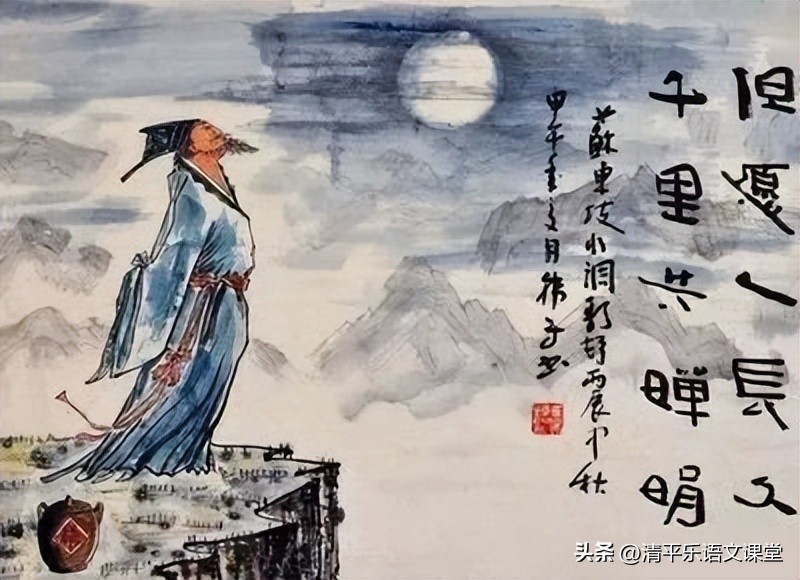 但愿人長久
千里共嬋娟
蘇東坡水調歌頭丙辰中秋
甲午
头条 @清平乐语文课堂